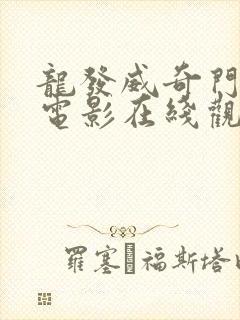 龍發威奇門
電影在綫觀
羅塞 福斯塔